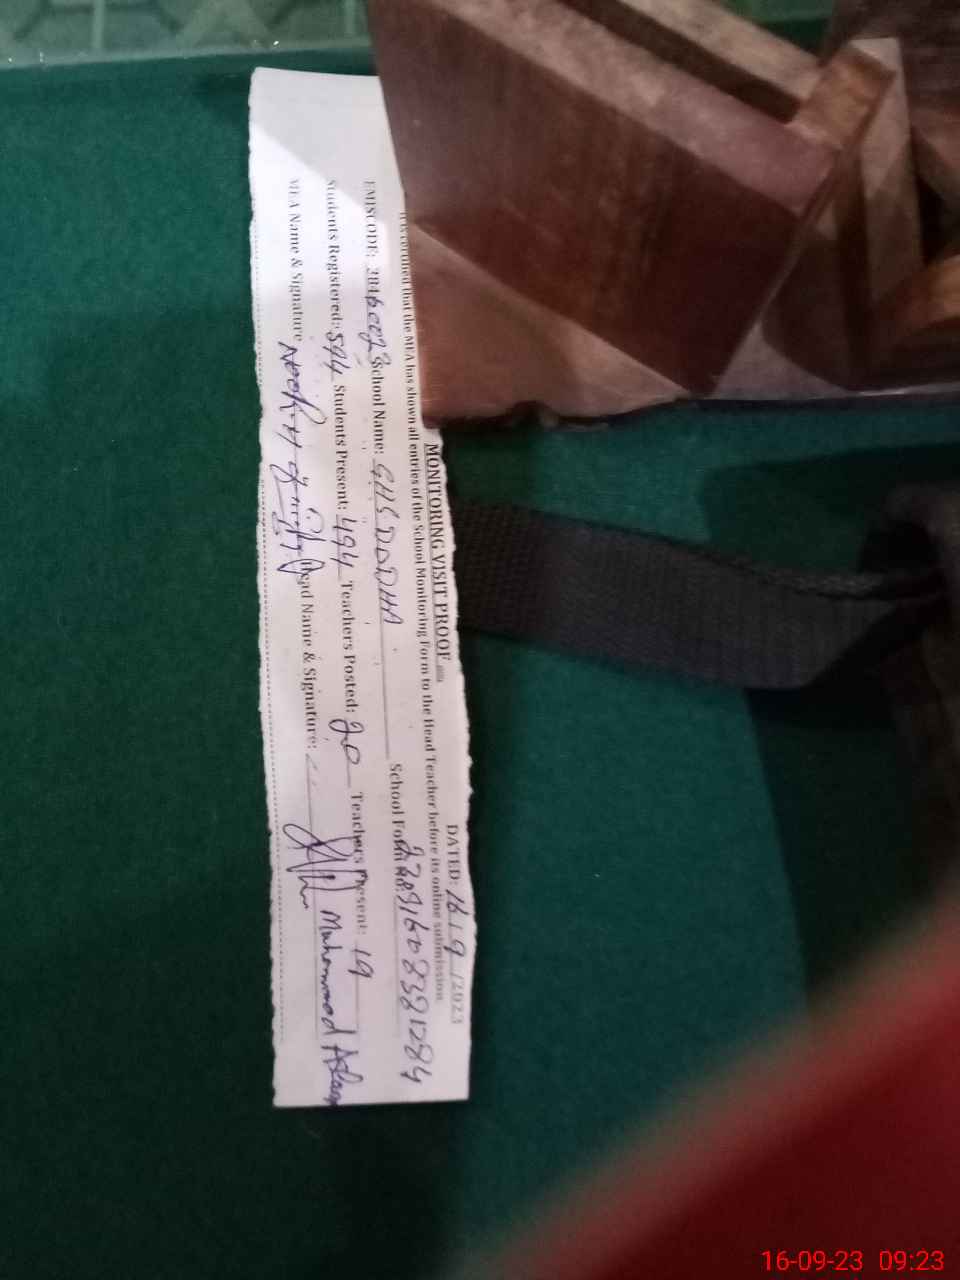 MONITORING VISIT PROOF
DATED: 16 / 9 /2023
It is certified that the MEA has shown all entries of the School Monitoring Form to the Head Teacher before its online submission.
EMISCODE: School Name: GHS DODHA School Form No:
Students Registered: 594 Students Present: 494 Teachers Posted: 20 Teachers Present: 19
MEA Name & Signature Head Name & Signature: Muhammad Aslam
16-09-23 09:23